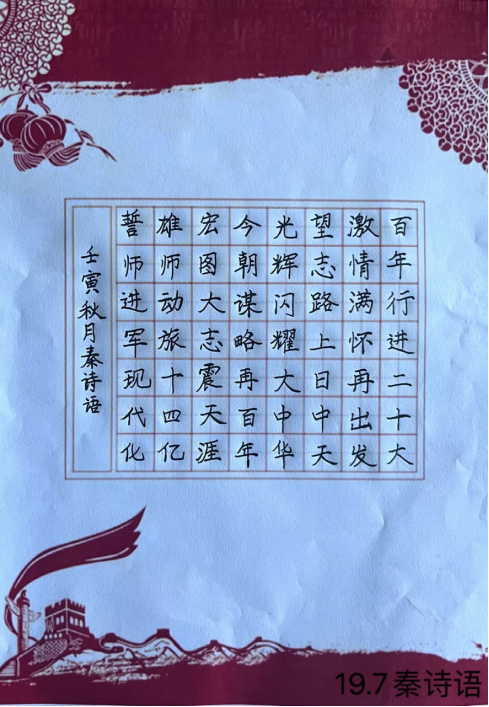 百年行进二十大
激情满怀再出发
望志路上日中天
光辉闪耀大中华
今朝谋略再百年
宏图大志震天涯
雄师动旅十四亿
誓师进军现代化
壬寅秋月秦诗语
19.7秦诗语